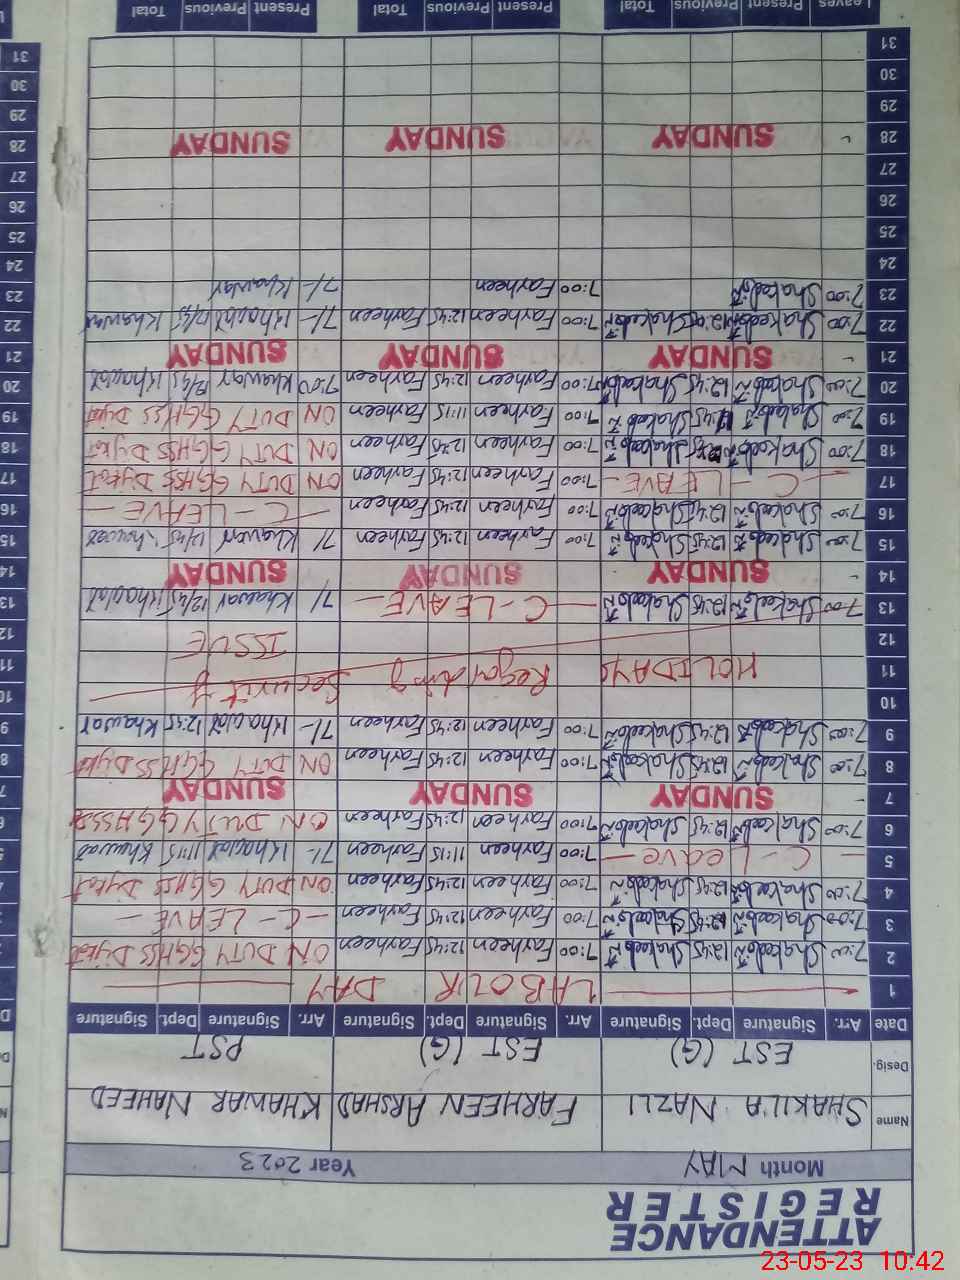 ATTENDANCE
REGISTER
Month MAY Year 2023
Name SHAKILA NAZLI FARHEEN ARSHAD KHAWAR NAHEED
Desig. EST (G) EST (G) PST
Date Arr. Signature Dept. Signature Arr. Signature Dept. Signature Arr. Signature Dept. Signature
1 LABOUR DAY
2 7:00 Shakeela 12:45 Shakeela 7:00 Farheen 12:45 Farheen ON DUTY GGHSS Dijkot
3 7:00 Shakeela 12:45 Shakeela 7:00 Farheen 12:45 Farheen — C - LEAVE —
4 7:00 Shakeela 12:45 Shakeela 7:00 Farheen 12:45 Farheen ON DUTY GGHSS Dijkot
5 — C - Leave — 7:00 Farheen 11:15 Farheen 7/- Khawar 11:15 Khawar
6 7:00 Shakeela 12:45 Shakeela 7:00 Farheen 12:45 Farheen ON DUTY GGHSS
7 SUNDAY SUNDAY SUNDAY
8 7:00 Shakeela 12:45 Shakeela 7:00 Farheen 12:45 Farheen ON DUTY GGHSS Dijkot
9 7:00 Shakeela 12:45 Shakeela 7:00 Farheen 12:45 Farheen 7/- Khawar 12:45 Khawar
10
11 HOLIDAYS Regarding Security
12 ISSUE
13 7:00 Shakeela 12:45 Shakeela — C - LEAVE — 7/ Khawar 12/45 Khawar
14 SUNDAY SUNDAY SUNDAY
15 7:00 Shakeela 12:45 Shakeela 7:00 Farheen 12:45 Farheen 7/ Khawar 12/45 Khawar
16 7:00 Shakeela 12:45 Shakeela 7:00 Farheen 12:45 Farheen — C - LEAVE —
17 — C - LEAVE — 7:00 Farheen 12:45 Farheen ON DUTY GGHSS Dijkot
18 7:00 Shakeela Shakeela 7:00 Farheen 12:45 Farheen ON DUTY GGHSS Dijkot
19 7:00 Shakeela Shakeela 7:00 Farheen 11:15 Farheen ON DUTY GGHSS Dijkot
20 7:00 Shakeela 12:45 Shakeela 7:00 Farheen 12:45 Farheen 7:00 Khawar 12/45 Khawar
21 SUNDAY SUNDAY SUNDAY
22 7:00 Shakeela 12:45 Shakeela 7:00 Farheen 12:45 Farheen 7/- Khawar 12/45 Khawar
23 7:00 Shakeela 7:00 Farheen 7/- Khawar
24
25
26
27
28 SUNDAY SUNDAY SUNDAY
29
30
31
Leaves Present Previous Total Present Previous Total Present Previous Total
23-05-23 10:42